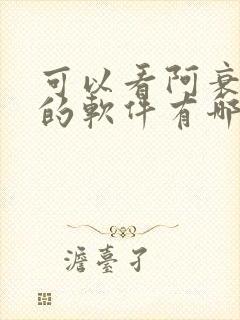 可以看阿衰
的軟件有哪
澹臺孑